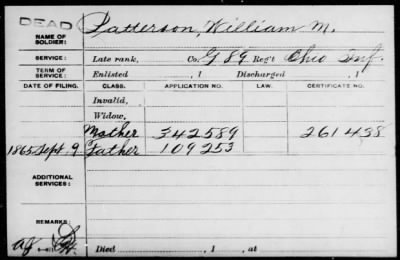 DEAD
NAME OF SOLDIER: Patterson, William M.
SERVICE: Late rank, Co. G 89 Reg't Ohio Inf.
TERM OF SERVICE: Enlisted , 1 Discharged , 1
DATE OF FILING. CLASS. APPLICATION NO. LAW. CERTIFICATE NO.
Invalid,
Widow,
Mother 342589 261438
1865 Sept. 9 Father 109253
ADDITIONAL SERVICES:
REMARKS:
Died , 1 , at